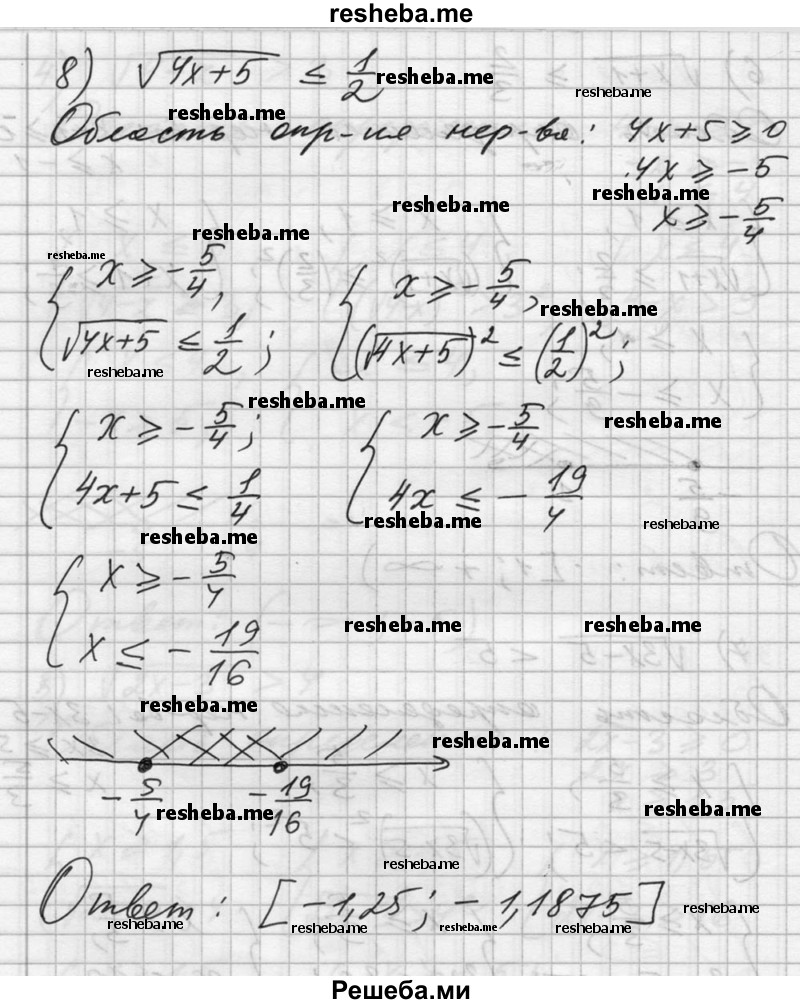 resheba.me
8) √(4x+5) ≤ 1/2 resheba.me
resheba.me
resheba.me
Область опр-ия нер-ва: 4x+5 ≥ 0
4x ≥ -5
resheba.me
resheba.me
x ≥ -5/4
resheba.me
resheba.me
{ x ≥ -5/4, { x ≥ -5/4,
resheba.me
√(4x+5) ≤ 1/2; (√(4x+5))² ≤ (1/2)²;
resheba.me
resheba.me
{ x ≥ -5/4; { x ≥ -5/4
resheba.me
4x+5 ≤ 1/4 4x ≤ -19/4
resheba.me
resheba.me
resheba.me
{ x ≥ -5/4
resheba.me
resheba.me
x ≤ -19/16
resheba.me
resheba.me
-5/4 -19/16
resheba.me
resheba.me
resheba.me
Ответ: [-1,25; -1,1875]
resheba.me
resheba.me
resheba.me
resheba.me
resheba.me
Решеба.ми